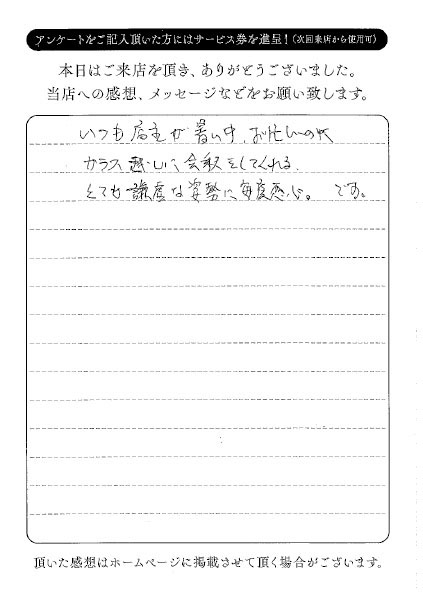 アンケートをご記入頂いた方にはサービス券を進呈！（次回来店から使用可）
本日はご来店を頂き、ありがとうございました。
当店への感想、メッセージなどをお願い致します。
いつも店主が暑い中、お忙しいのに
ガラス越しに会釈をしてくれる。
とても謙虚な姿勢に毎度感心。です。
頂いた感想はホームページに掲載させて頂く場合がございます。